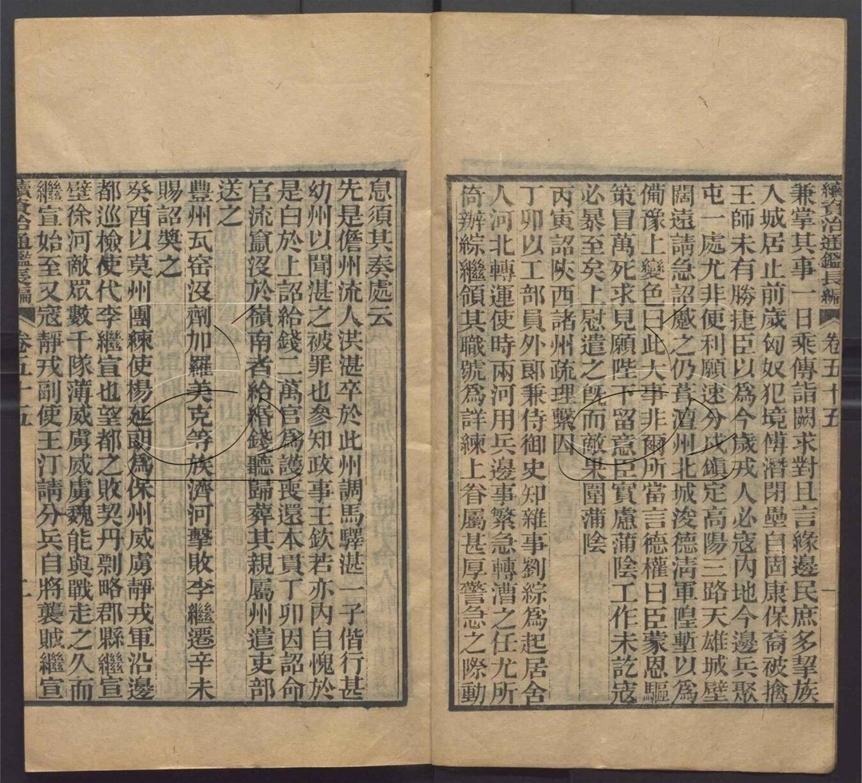 續資治通鑑長編 卷五十五 一
兼掌其事一日乘傳詣闕求對且言緣邊民庶多挈族
入城居止前歲匈奴犯境傅潛閉壘自固康保裔被擒
王師未有勝捷臣以爲今歲戎人必寇內地今邊兵聚
屯一處尤非便利願速分戍鎮定高陽三路天雄城壁
闊遠請急詔蹙之仍葺澶州北城浚德清軍隍塹以爲
備豫上變色曰此大事非爾所當言德權曰臣蒙恩驅
策冒萬死求見願陛下留意臣實慮蒲陰工作未訖寇
必暴至矣上慰遣之旣而敵果圍蒲陰
丙寅詔陝西諸州疏理繫囚
丁卯以工部員外郎兼侍御史知雜事劉綜爲起居舍
人河北轉運使時兩河用兵邊事繁急轉漕之任尤所
倚辦綜繼領其職號爲詳練上眷屬甚厚警急之際動
息須其奏處云
先是儋州流人洪湛卒於此州調馬驛湛一子偕行甚
幼州以聞湛之被罪也參知政事王欽若亦內自愧於
是白於上詔給錢二萬官爲護喪還本貫丁卯因詔命
官流竄沒於嶺南者給緡錢聽歸葬其親屬州遣吏部
送之
豐州瓦窑沒劑加羅美克等族濟河擊敗李繼遷辛未
賜詔獎之
癸酉以莫州團練使楊延朗爲保州威虜靜戎軍沿邊
都巡檢使代李繼宣也望都之敗契丹剽略郡縣繼宣
壁徐河敵眾數千隊薄威虜威虜魏能與戰走之久而
繼宣始至又寇靜戎副使王汀請分兵自將襲賊繼宣
續資治通鑑長編 卷五十五 二